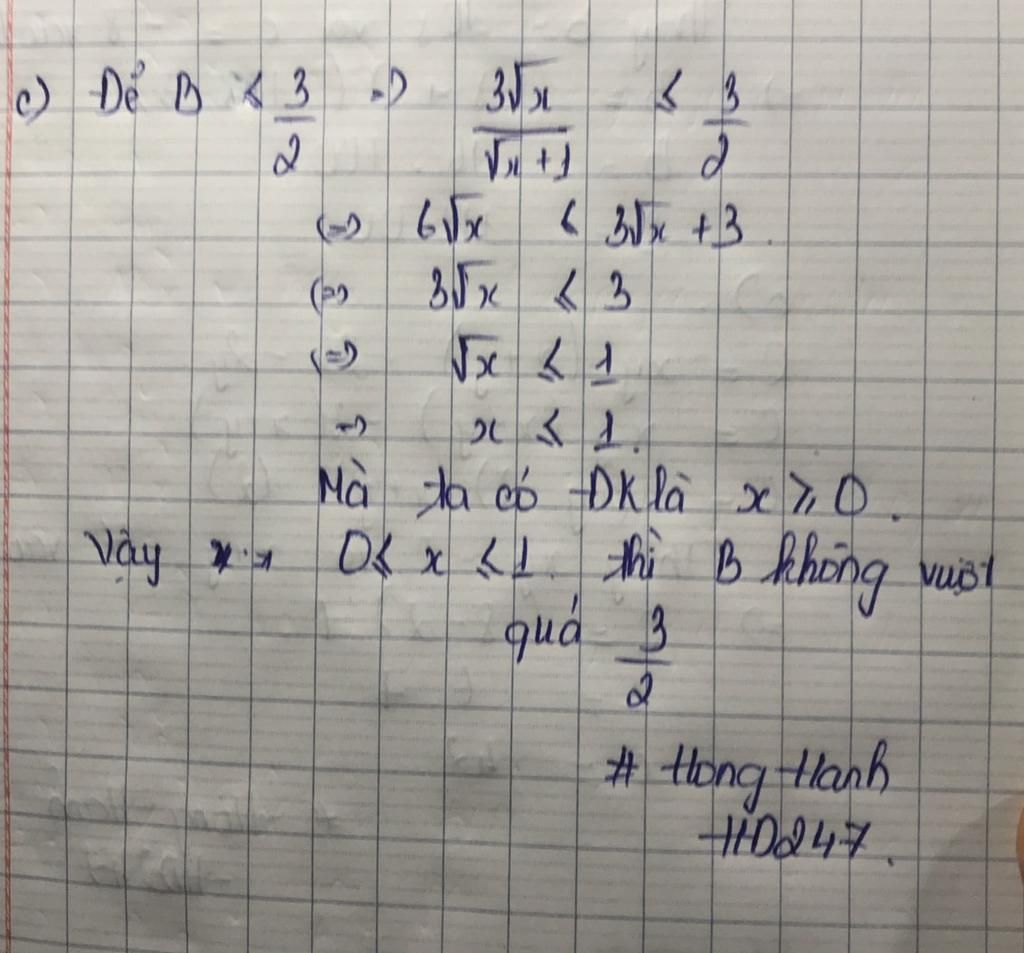 c) Để B ≤ 3/2 => 3√x / (√x + 1) ≤ 3/2
(=) 6√x ≤ 3√x + 3.
(=) 3√x ≤ 3
(=) √x ≤ 1
=> x ≤ 1.
Mà ta có ĐK là x ≥ 0.
Vậy 0 ≤ x ≤ 1 thì B không vượt
quá 3/2
# Hong Hanh
HD247.